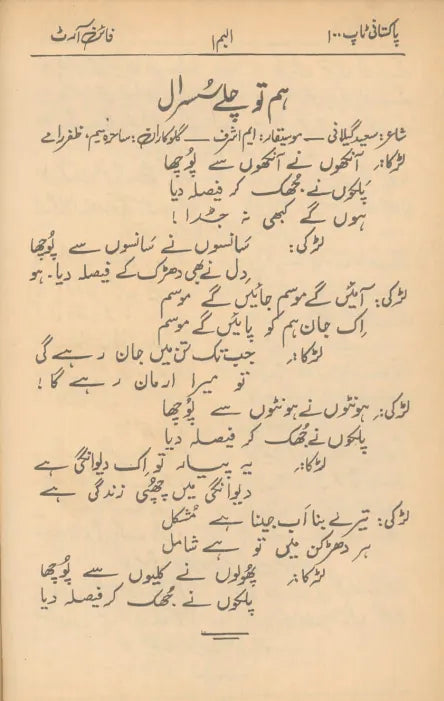 پاکستانی ٹاپ ۱۰۰
البم ۱
فائن آرٹ
ہم تو چلے سُسرال
شاعر: سعید گیلانی — موسیقار: ایم اشرف — گلوکاران: سائرہ نسیم، ظفر رامے
لڑکا: آنکھوں نے آنکھوں سے پُوچھا
پَلکوں نے جُھک کر فیصلہ دیا
ہوں گے کبھی نہ جُدا !
لڑکی: سَانسوں نے سَانسوں سے پُوچھا
دِل نے بھی دھڑک کے فیصلہ دیا۔ ہو
لڑکی: آئیں گے موسم جائیں گے موسم
اِک جان ہم کو پائیں گے موسم
لڑکا: جب تک تن میں جان رہے گی
تو میرا ارمان رہے گا !
لڑکی: ہونٹوں نے ہونٹوں سے پُوچھا
پلکوں نے جُھک کر فیصلہ دیا
لڑکا: یہ پیار تو اِک دیوانگی ہے
دیوانگی میں چُھپی زندگی ہے
لڑکی: تیرے بنا اَب جینا ہے مُشکل
ہر دھڑکن میں تو ہے شامل
لڑکا: پھُولوں نے کلیوں سے پُوچھا
پلکوں نے جُھک کر فیصلہ دیا